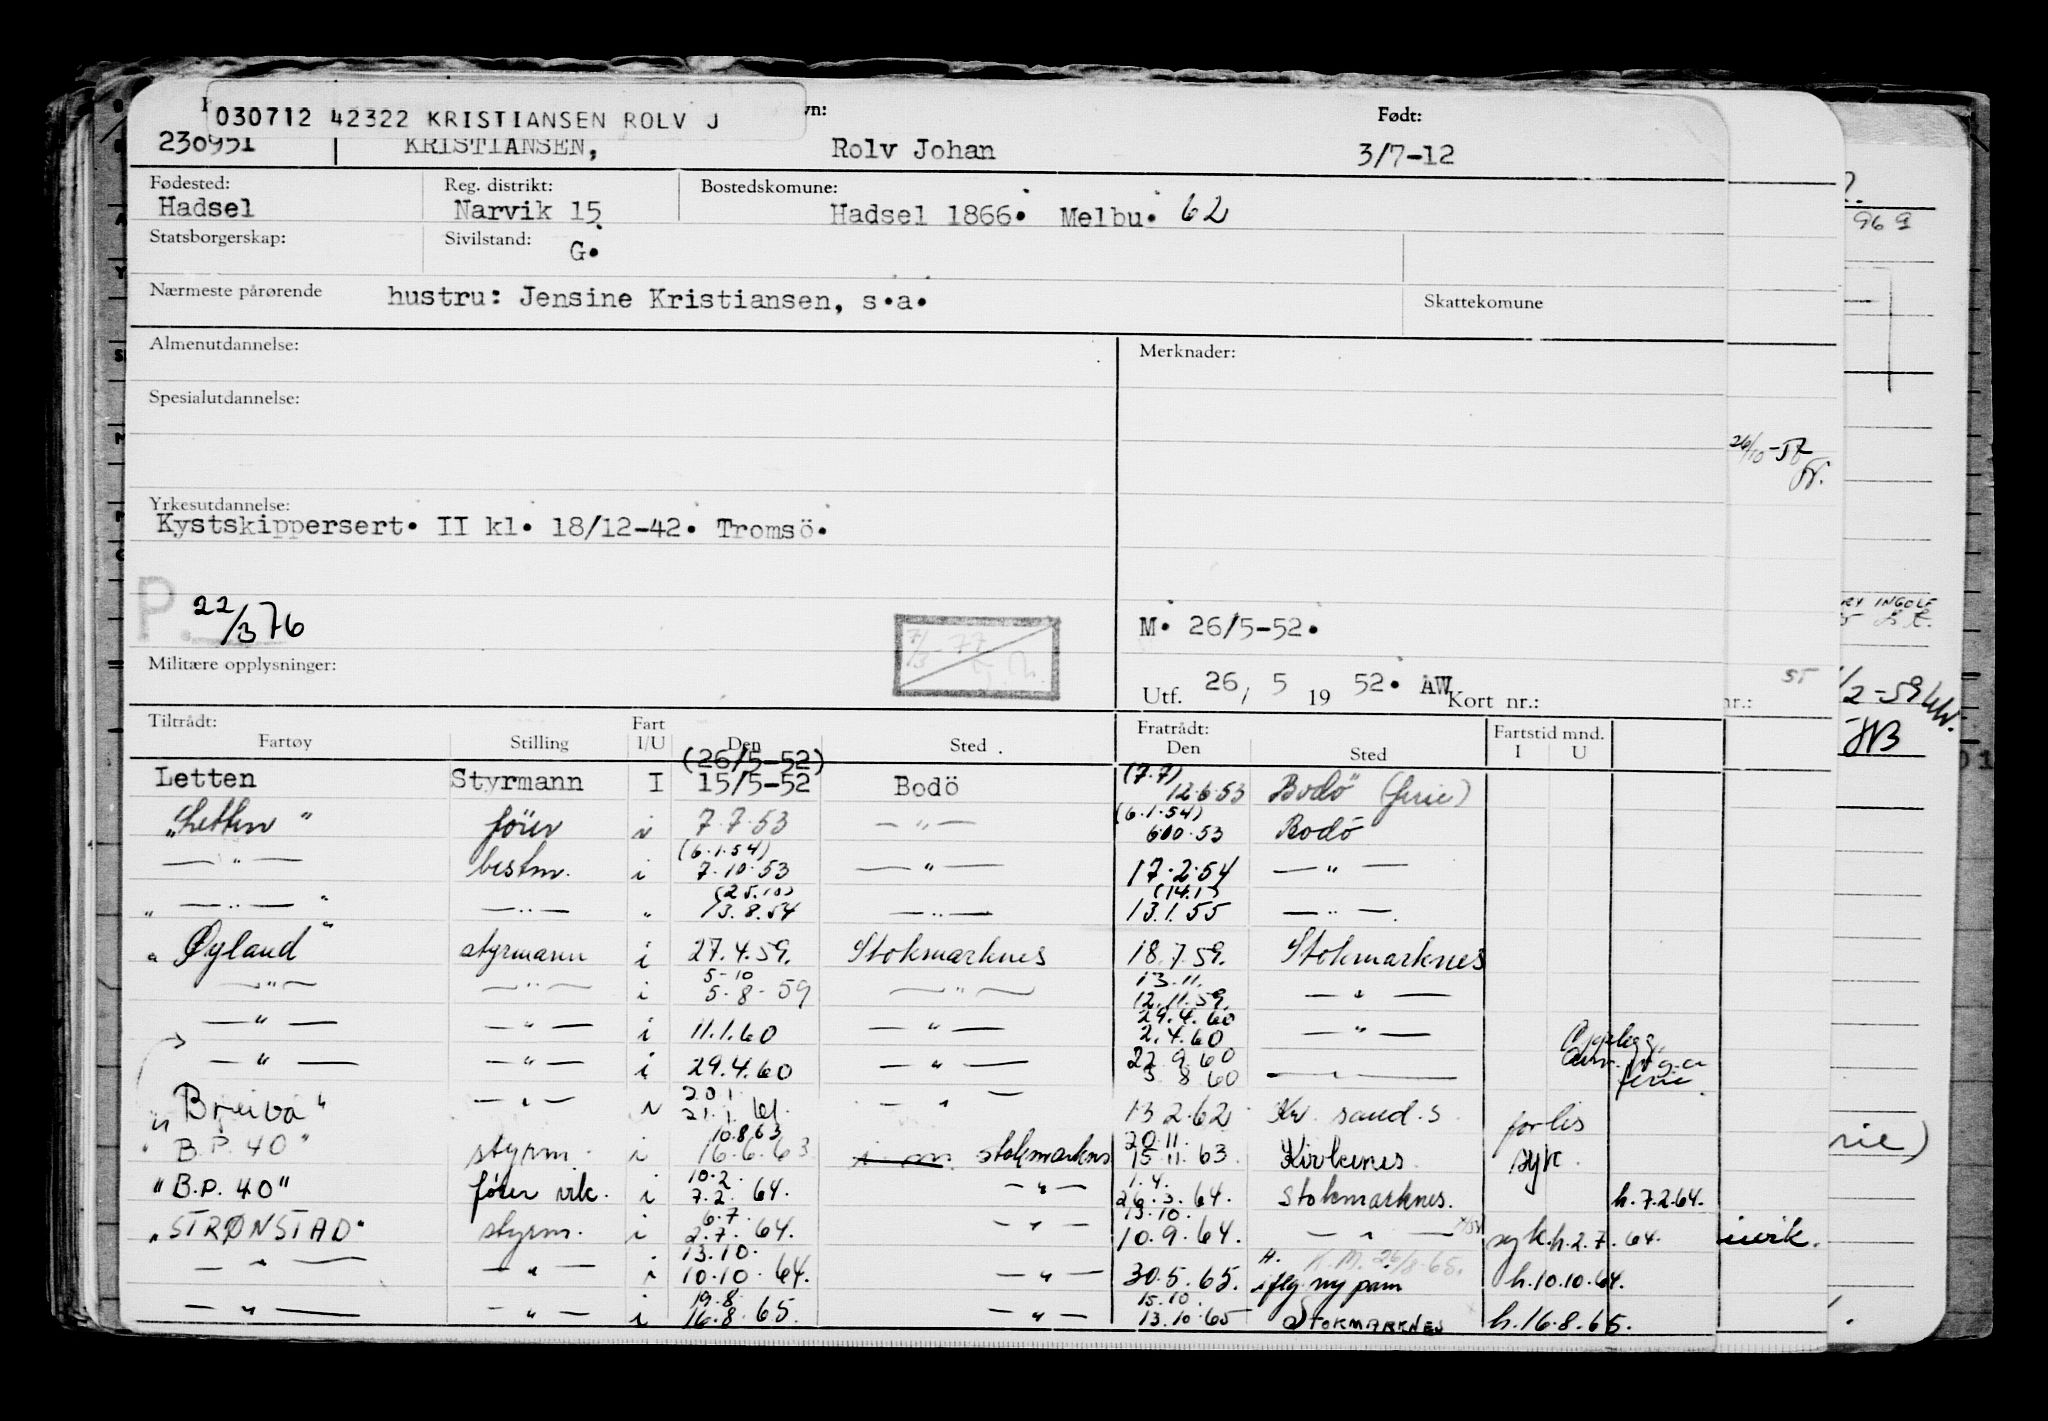 030712 42322 KRISTIANSEN ROLV J
vn: Født:
230951 KRISTIANSEN, Rolv Johan 3/7-12
Fødested: Reg. distrikt: Bostedskomune:
Hadsel Narvik 15 Hadsel 1866. Melbu. 62
Statsborgerskap: Sivilstand:
G.
969
Nærmeste pårørende hustru: Jensine Kristiansen, s.a. Skattekomune
Almenutdannelse: Merknader:
Spesialutdannelse:
26/10-57
Yrkesutdannelse:
Kystskippersert. II kl. 18/12-42. Tromsö.
P. 22/3 76
RY INGOLF
7/3-77
M. 26/5-52.
Militære opplysninger:
Utf. 26, 5 19 52. AW Kort nr.: nr.:
/2-59
HB
Tiltrådt: Fart Fratrådt: Fartstid mnd.
Fartøy Stilling I/U Den Sted Den Sted I U
(26/5-52) (7.7)
Letten Styrmann I 15/5-52 Bodö 12.6.53 Bodö (ferie)
(6.1.54)
"Letten" fører i 7.7.53 — " — 6.10.53 Bodö
(6.1.54)
— " — bestm. i 7.10.53 — " — 17.2.54 — " —
(25.10) (14.1)
" — " — " — " — " 13.8.54 — " — 13.1.55 — " —
"Øyland" styrmann i 27.4.59. Stokmarknes 18.7.59. Stokmarknes
5-10 13.11.
— " — — " — i 5-8-59 — " — 12.11.59. — " —
29.4.60
— " — — " — i 11.1.60 — " — 2.4.60 — " —
22.9.60
— " — — " — i 29.4.60 — " — 3 8 60 — " — ferie.
20 1
"Breivå" — " — i 21.1.61. — " — 13 2.62 Kr. sand. S. forlis
10.8.63 20.11.
"B.P. 40" styrm. i 16.6.63 stokmarknes 15 11.63. Kirkenes. syk.
10.2. 1.4.
"B.P. 40" fører vik. i 7.2. 64. — " — 26.3.64. Stokmarknes. h.7.2.64.
6.7. 13.10.
"STRØNSTAD" styrm. i 2.7. 64. — " — 10.9.64. — " — syk. h.2.7.64.
13.10.
— " — — " — i 10.10.64. — " — 30.5.65. iflg. ny pam h.10.10.64.
19.8 15.10.
— " — — " — i 16.8.65. — " — 13.10.65 STOKMARKNES h.16.8.65.